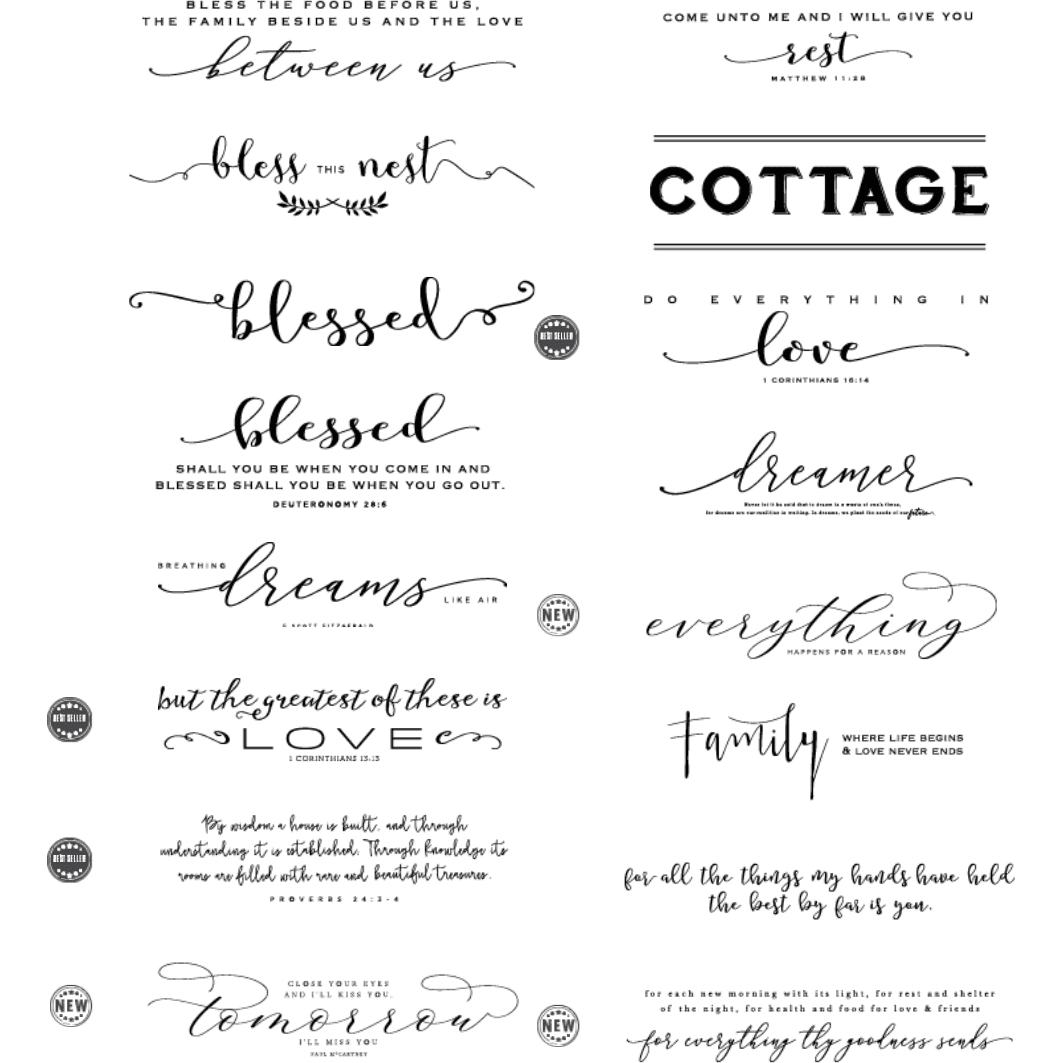 BLESS THE FOOD BEFORE US,
THE FAMILY BESIDE US AND THE LOVE
between us
bless THIS nest
blessed
BEST SELLER
blessed
SHALL YOU BE WHEN YOU COME IN AND
BLESSED SHALL YOU BE WHEN YOU GO OUT.
DEUTERONOMY 28:6
BREATHING
dreams
LIKE AIR
F. SCOTT FITZGERALD
BEST SELLER
but the greatest of these is
LOVE
1 CORINTHIANS 13:13
BEST SELLER
By wisdom a house is built, and through
understanding it is established. Through knowledge its
rooms are filled with rare and beautiful treasures.
PROVERBS 24:3-4
NEW
CLOSE YOUR EYES
AND I'LL KISS YOU,
tomorrow
I'LL MISS YOU
PAUL McCARTNEY
COME UNTO ME AND I WILL GIVE YOU
rest
MATTHEW 11:28
COTTAGE
DO EVERYTHING IN
love
1 CORINTHIANS 16:14
dreamer
Never let it be said that to dream is a waste of one's time,
for dreams are our realities in waiting. In dreams, we plant the seeds of our future.
NEW
everything
HAPPENS FOR A REASON
Family
WHERE LIFE BEGINS
& LOVE NEVER ENDS
for all the things my hands have held
the best by far is you.
NEW
for each new morning with its light, for rest and shelter
of the night, for health and food for love & friends
for everything thy goodness sends